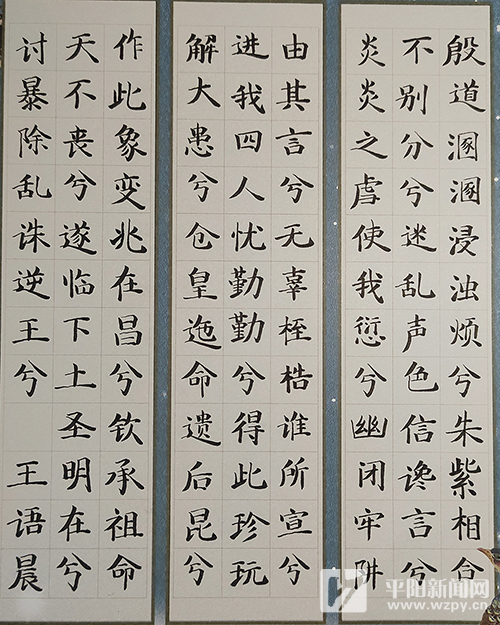 殷道溷溷浸浊烦兮朱紫相合
不别分兮迷乱声色信谗言兮
炎炎之虐使我愆兮幽闭牢阱
由其言兮无辜桎梏谁所宣兮
进我四人忧勤勤兮得此珍玩
解大患兮仓皇迤命遗后昆兮
作此象变兆在昌兮钦承祖命
天不丧兮遂临下土圣明在兮
讨暴除乱诛逆王兮 王语晨
平阳新闻网
www.wzpy.cn